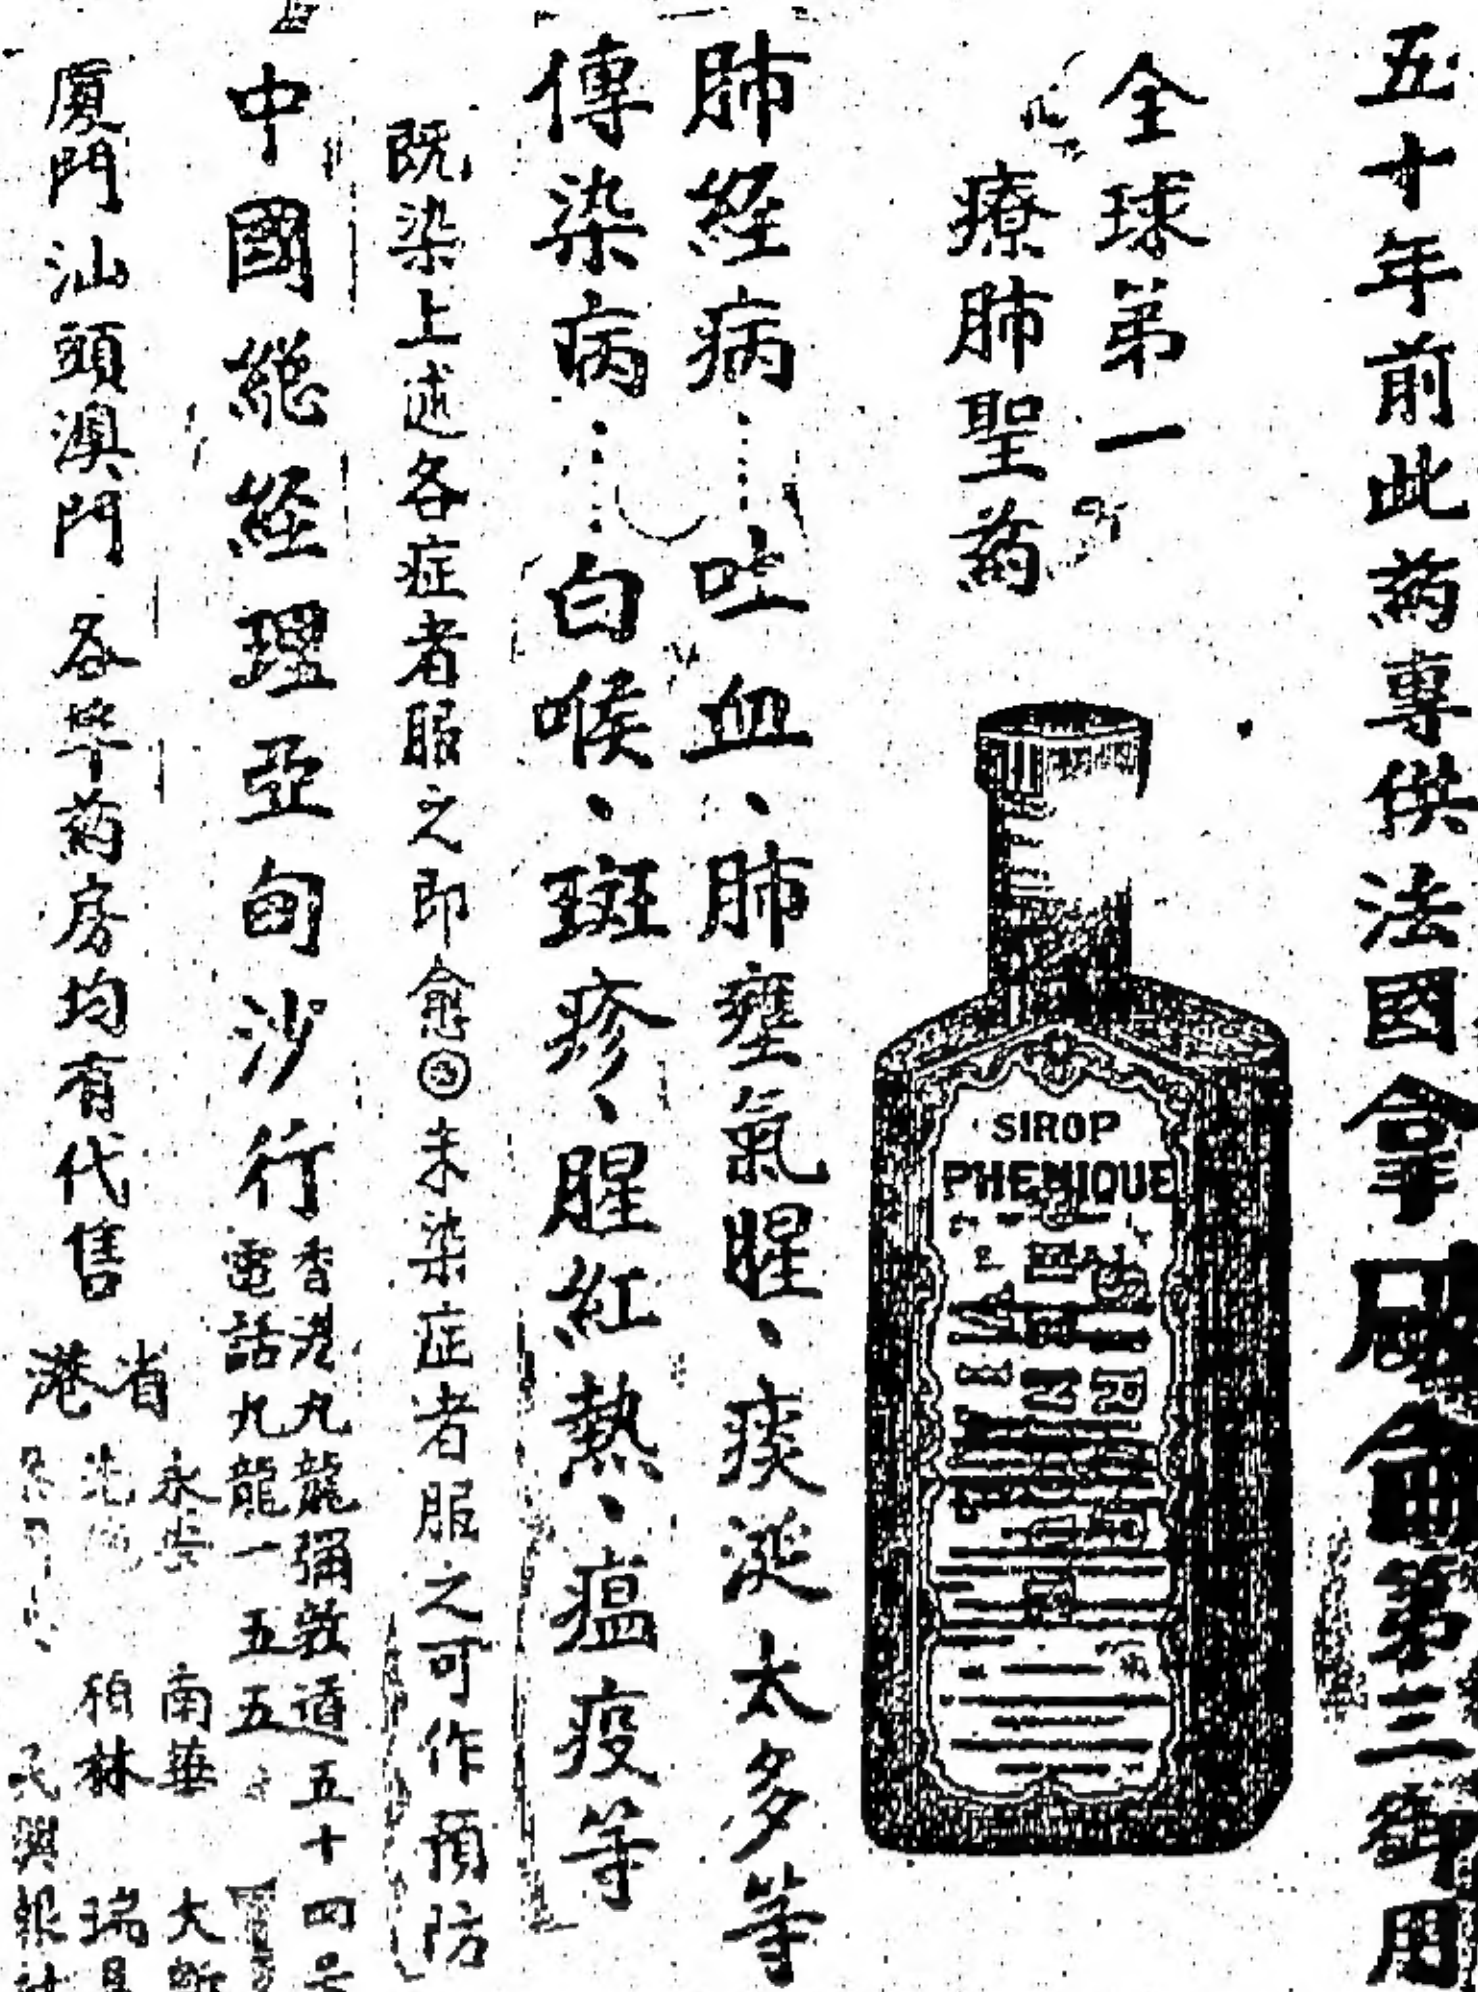 五十年前此葯專供法國拿破侖第三御用
全球第一
療肺聖葯
SIROP
PHENIQUE
肺經病……吐血、肺壅氣腥、痰涎太多等
傳染病……白喉、斑疹、腥紅熱、瘟疫等
既染上述各症者服之即愈
未染症者服之可作預防
中國總經理亞甸沙行
香港九龍彌敦道五十四号
電話九龍一五五
厦門汕頭澳門各埠葯房均有代售
省港
永安 南華 大新
先施 柏林
民興